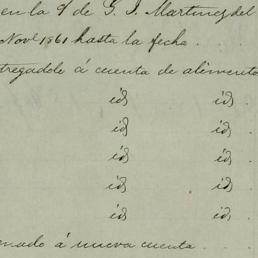 en la c/ de G. I. Martinez del
Novbe 1861 hasta la fecha.
tregadole á cuenta de alimento
id id
id id
id id
id id
id id
nado á nueva cuenta